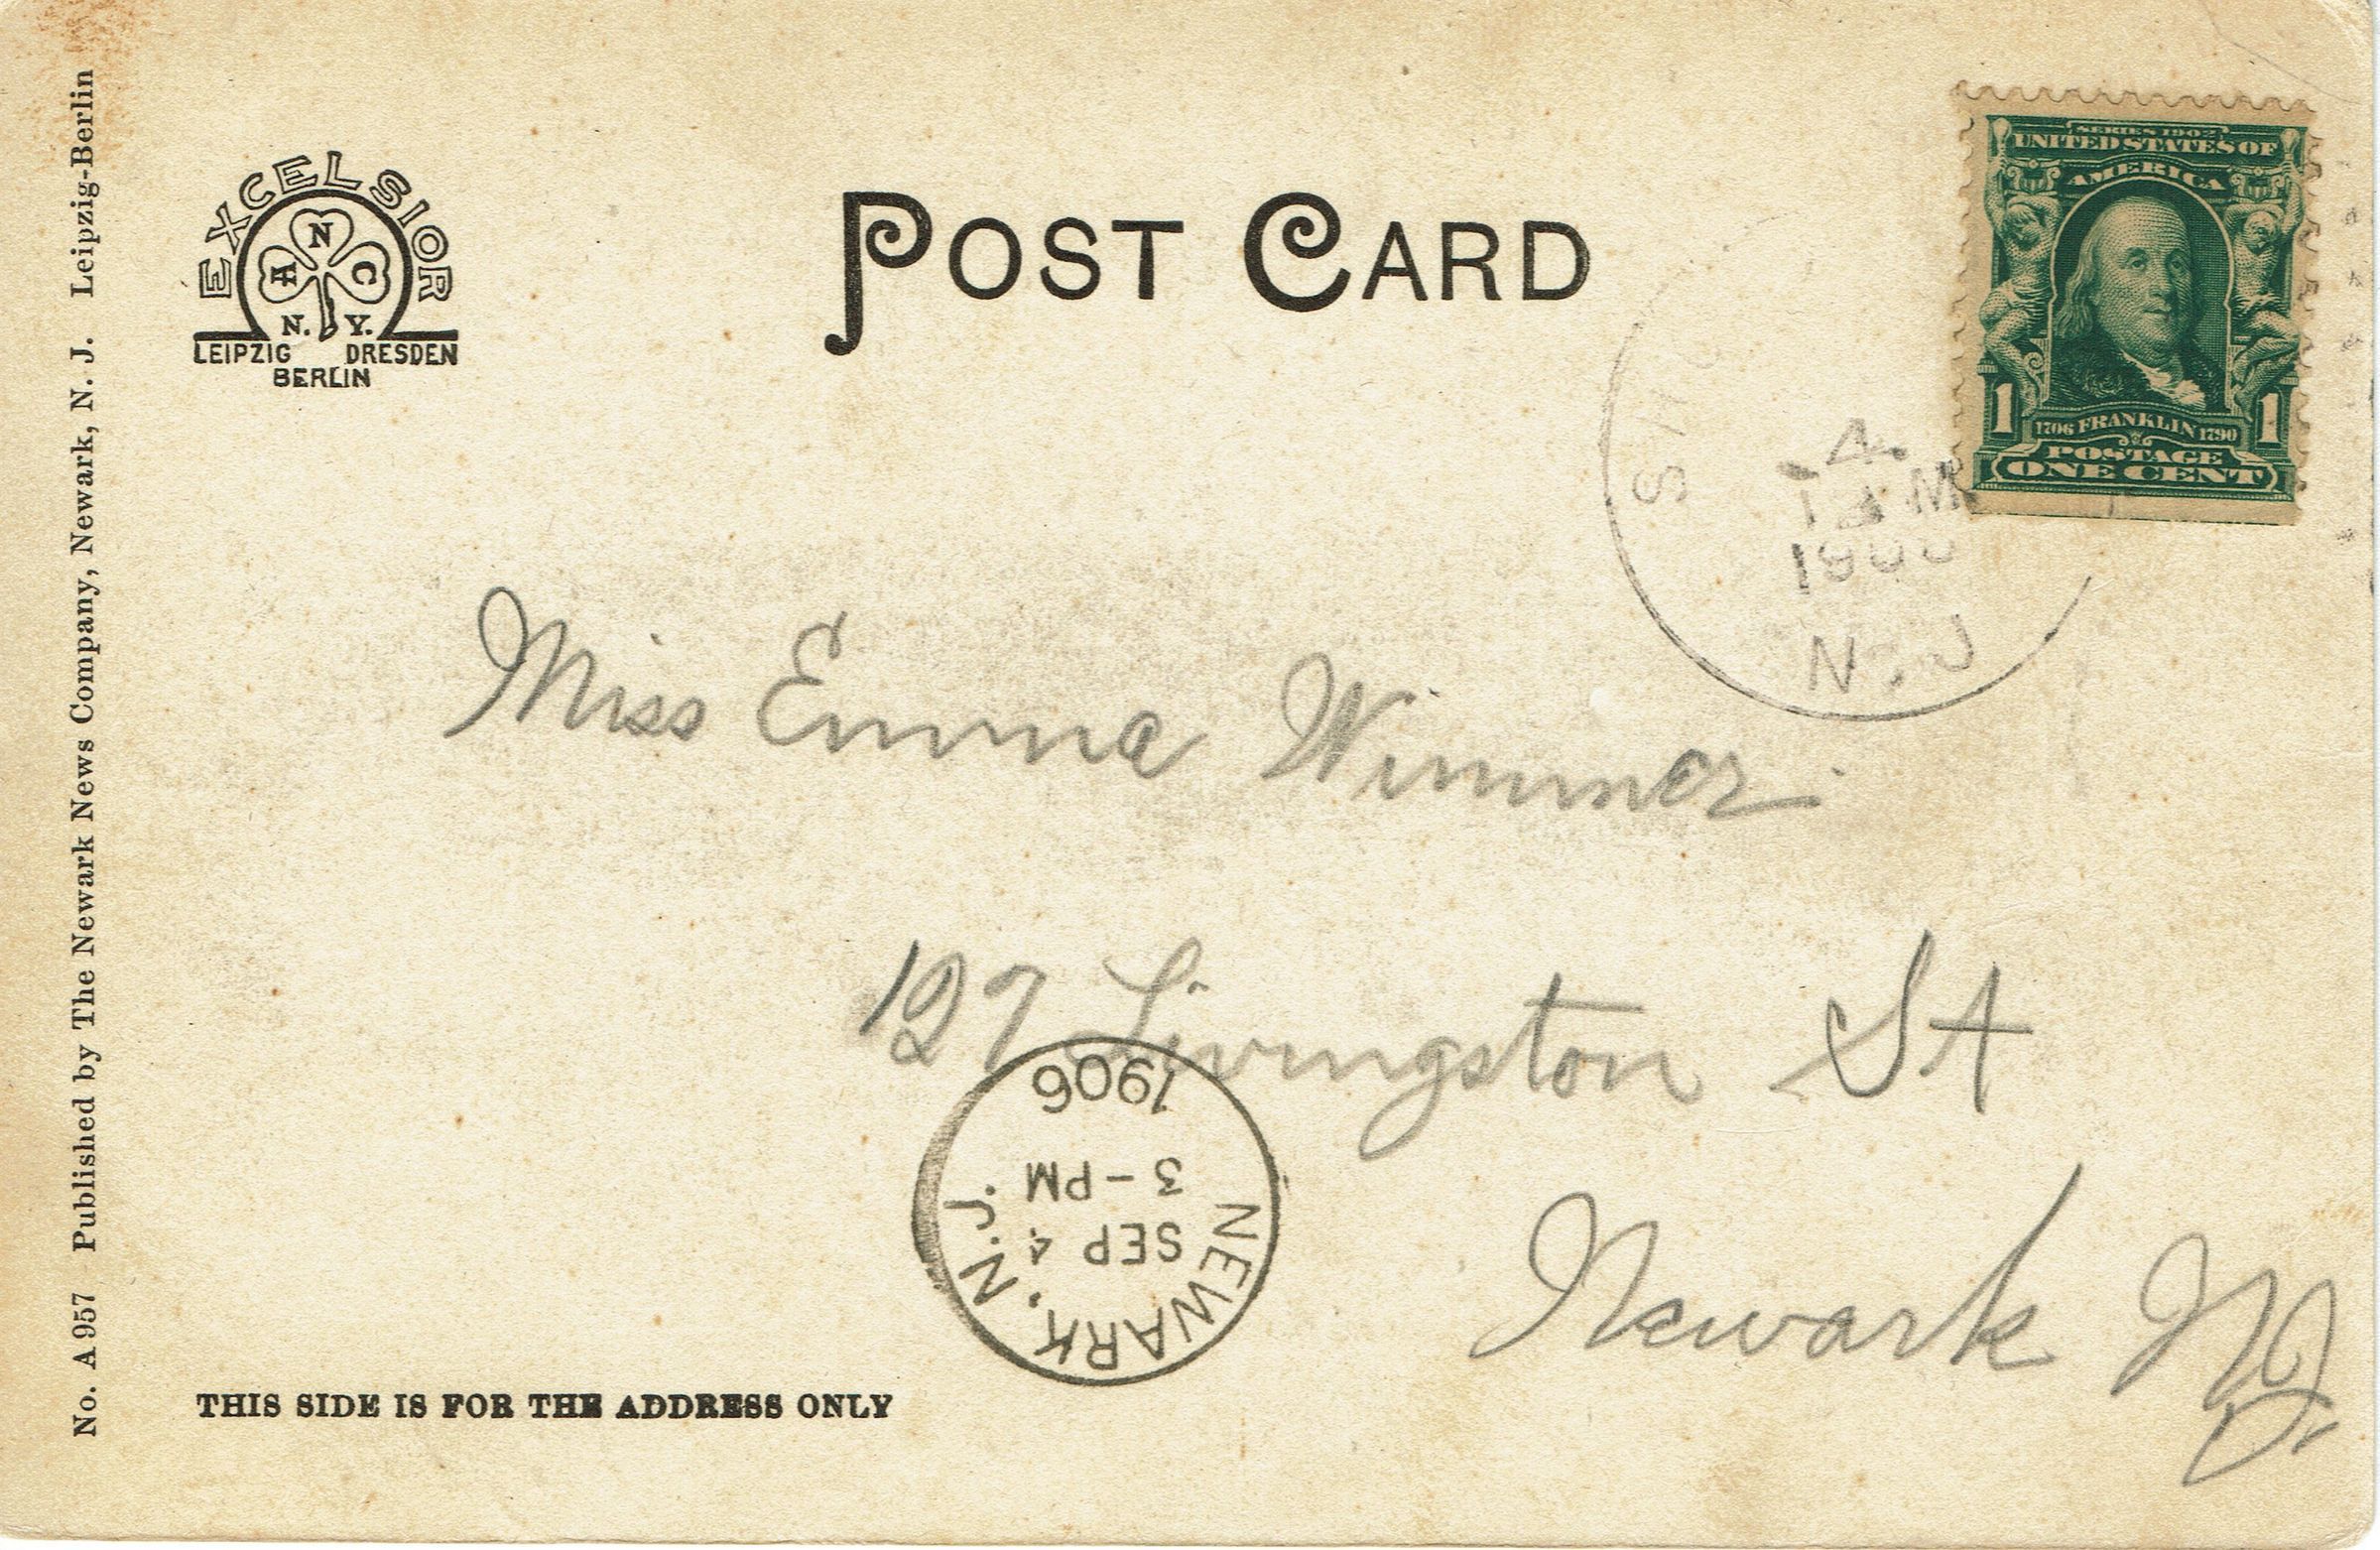 No. A 957 Published by The Newark News Company, Newark, N. J. Leipzig-Berlin
EXCELSIOR
A N C
N. Y.
LEIPZIG DRESDEN
BERLIN
POST CARD
SERIES 1902
UNITED STATES OF
AMERICA
1 1706 FRANKLIN 1790 1
POSTAGE
ONE CENT
4
M
N.J
Miss Emma Wimmer
127 Livingston St
Newark NJ
1906
3-PM
SEP 4
NEWARK, N.J.
THIS SIDE IS FOR THE ADDRESS ONLY